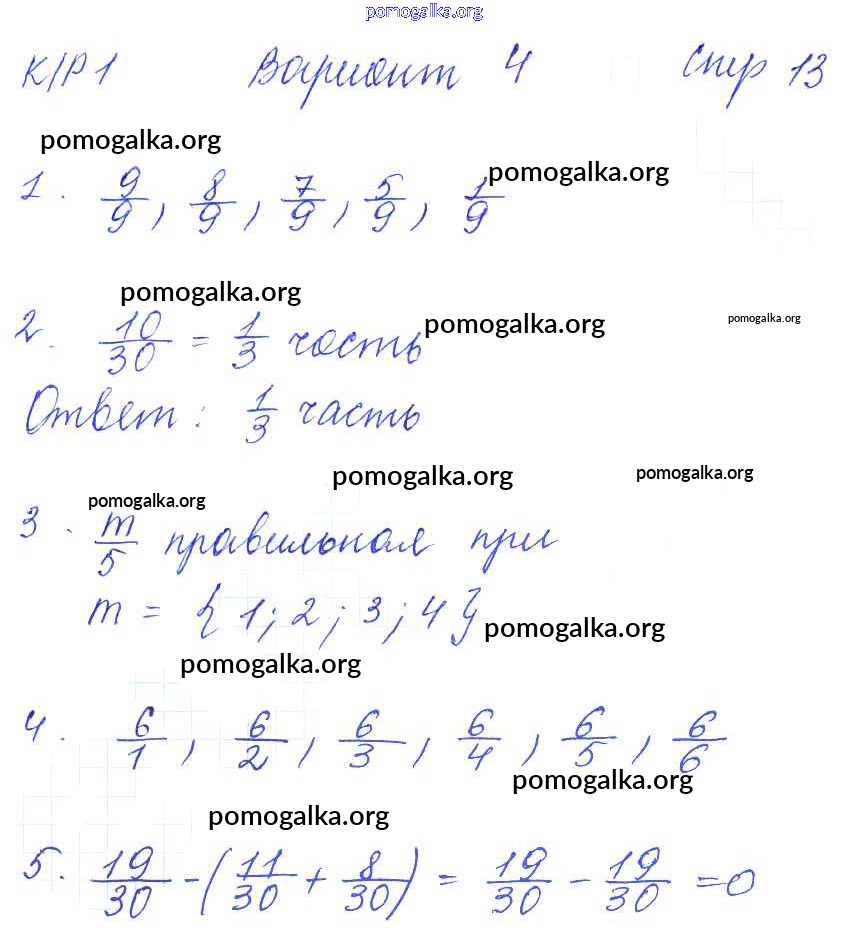 pomogalka.org
К/Р 1 Вариант 4 Стр 13
pomogalka.org
pomogalka.org
1. 9/9, 8/9, 7/9, 5/9, 1/9
pomogalka.org
pomogalka.org
pomogalka.org
2. 10/30 = 1/3 часть
Ответ: 1/3 часть
pomogalka.org
pomogalka.org
pomogalka.org
3. m/5 правильная при
m = {1; 2; 3; 4}
pomogalka.org
pomogalka.org
4. 6/1, 6/2, 6/3, 6/4, 6/5, 6/6
pomogalka.org
pomogalka.org
5. 19/30 - (11/30 + 8/30) = 19/30 - 19/30 = 0